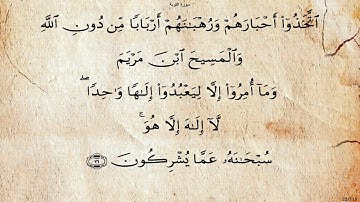 سورة التوبة
ٱتَّخَذُوٓا۟ أَحْبَارَهُمْ وَرُهْبَـٰنَهُمْ أَرْبَابًا مِّن دُونِ ٱللَّهِ
وَٱلْمَسِيحَ ٱبْنَ مَرْيَمَ
وَمَآ أُمِرُوٓا۟ إِلَّا لِيَعْبُدُوٓا۟ إِلَـٰهًا وَٰحِدًا ۖ
لَّآ إِلَـٰهَ إِلَّا هُوَ ۚ
سُبْحَـٰنَهُۥ عَمَّا يُشْرِكُونَ ٣١